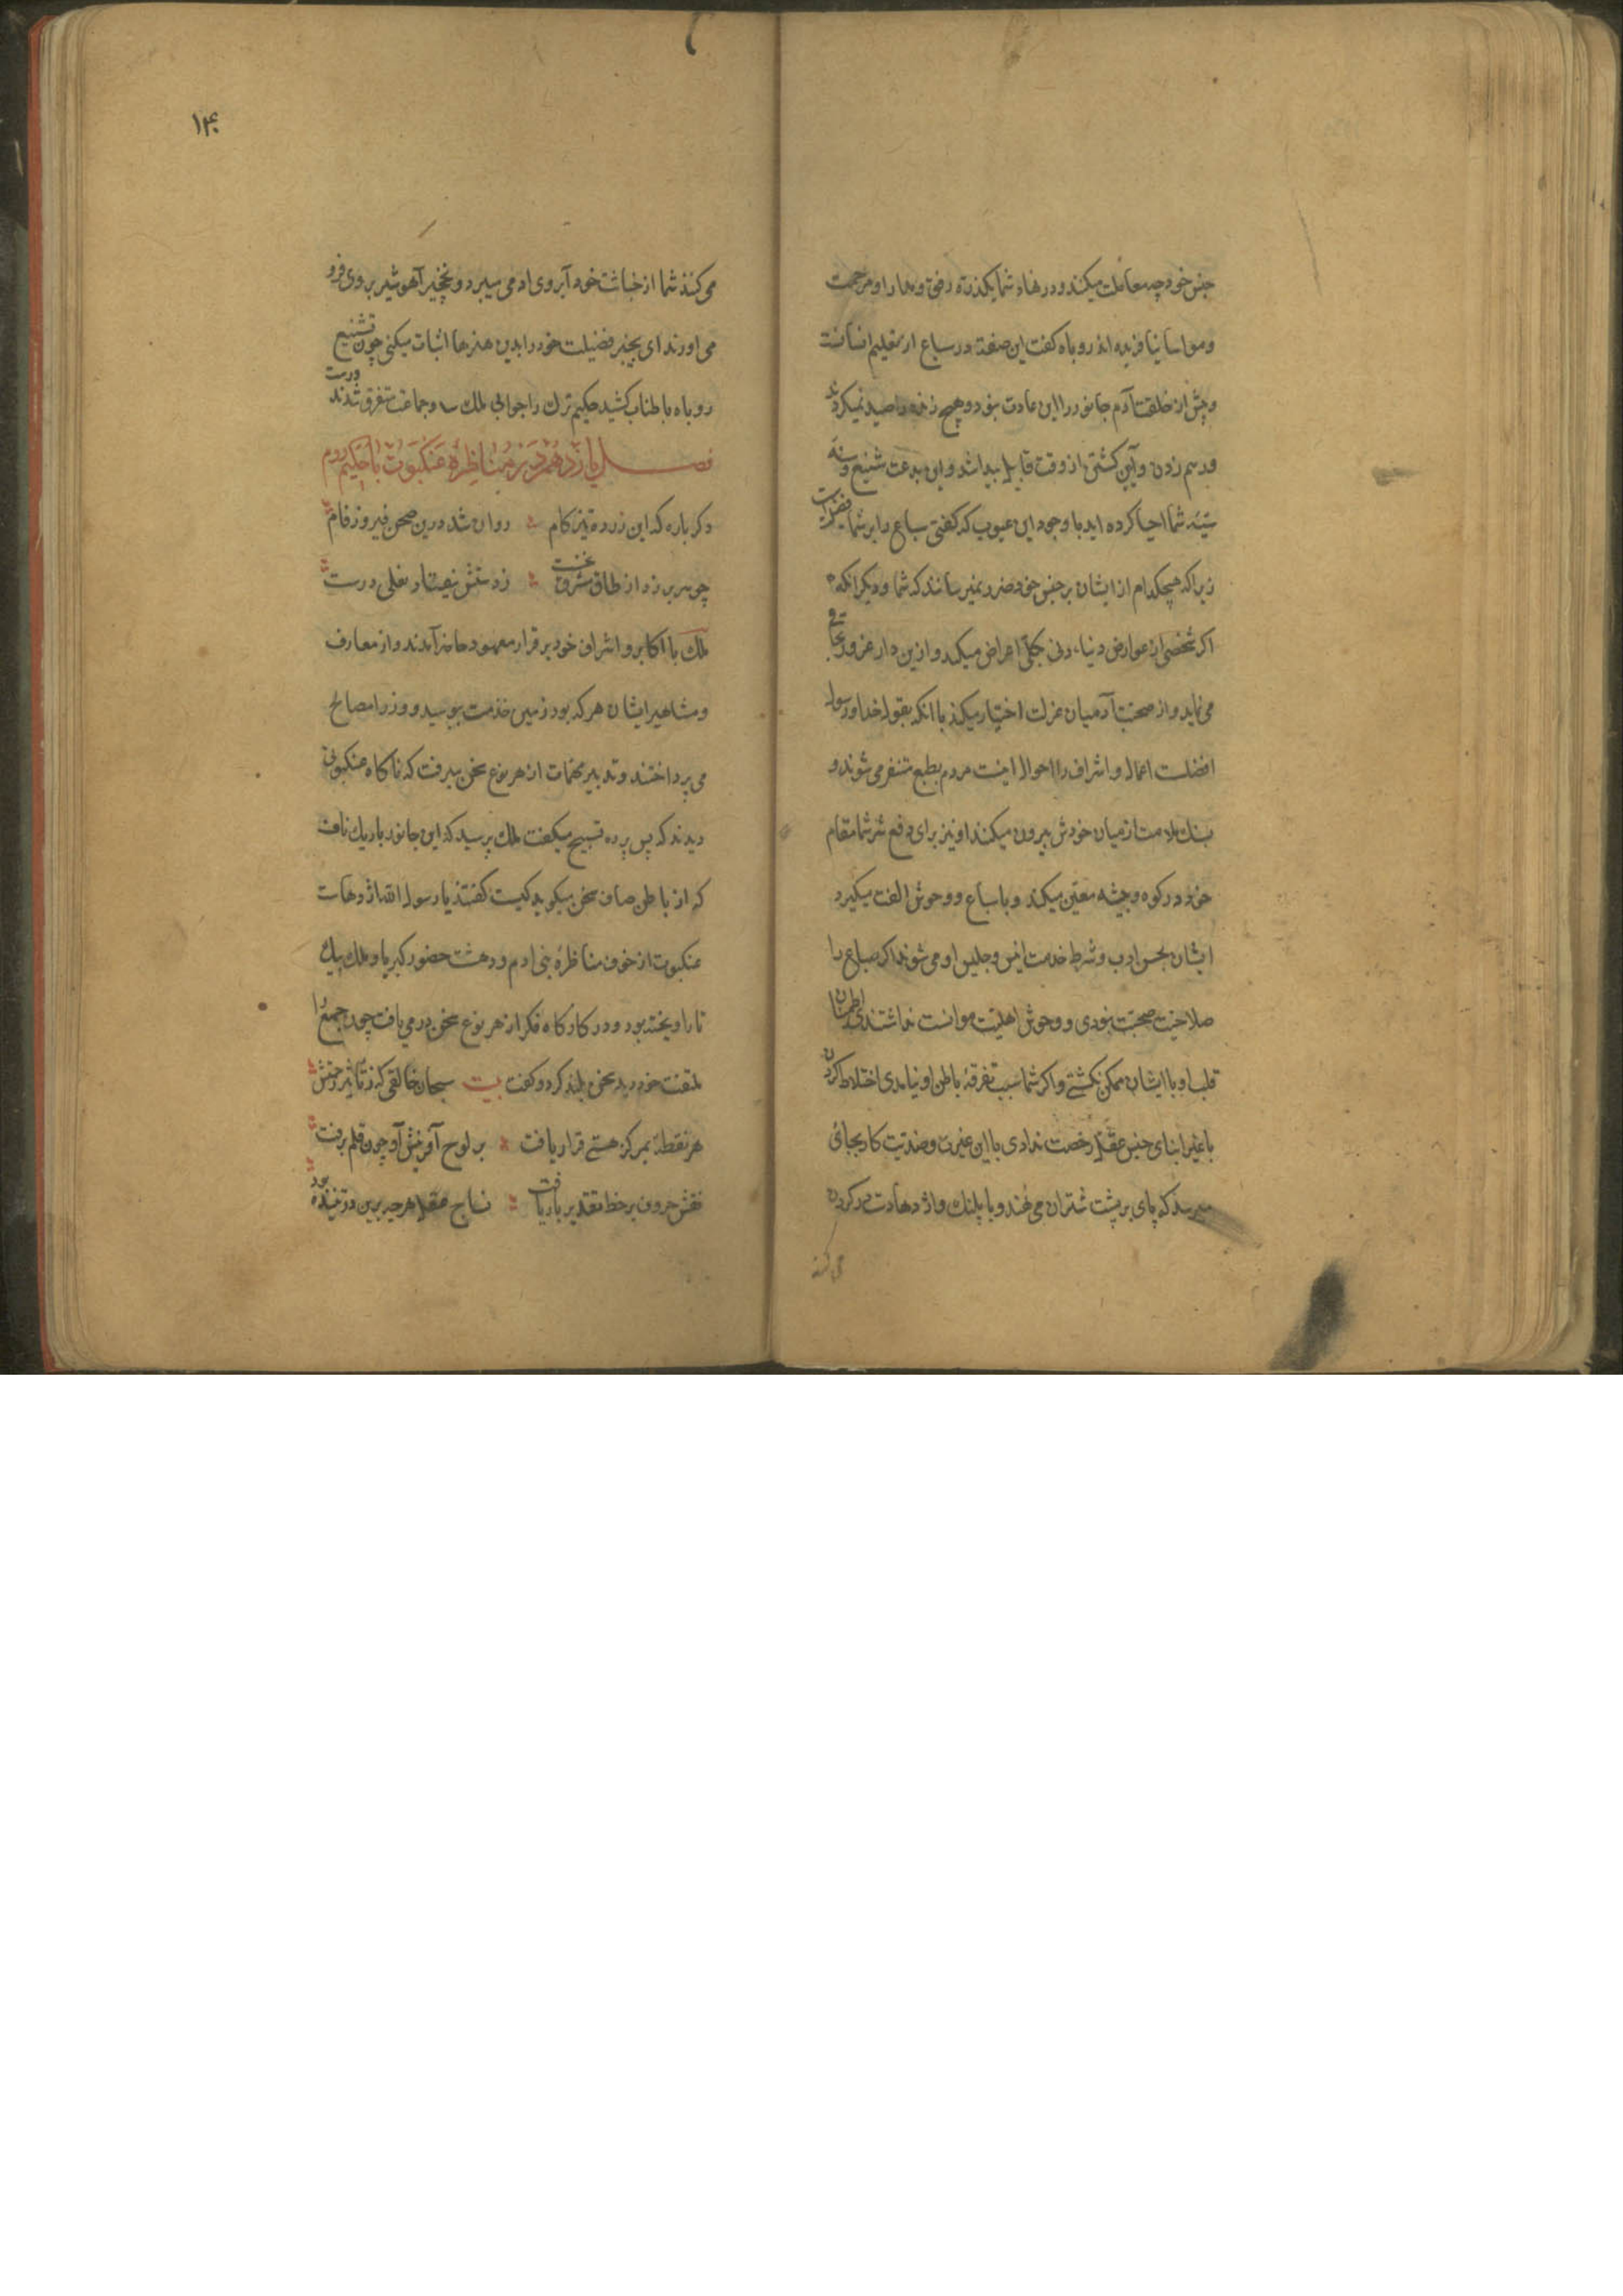 جنس خود چه معاملت میکند و در نهاد شما یکذره رفق و مدارا و مرحمت
و مواسا نیافریده اند روباه کفت این صفة در سباع از تعلیم انسانست
و پیش از خلقت آدم جانور را این عادت نبود و هیچ زنده را صید نمیکردند
و رسم زدن و آیین کشتن از وقت قابیل پیدا شد و این بدعت شنیع و سنة
سیّئه شما احیا کرده اید با وجود این عیوب که کفتی سباع را بر شما فضیلت
زیرا که هیچکدام از ایشان بر جنس خود ضرر نمیرسانند که شما و دیکر انکه
اکر شخصی از عوارض دنیاء دنی بکلّی اعراض میکند و ازین دار غرور
می نماید و از صحبت آدمیان عزلت اختیار میکند با انکه بقول خدا و رسول
افضلست اعمال و اشراف را احوال اینست مردم بطبع متنفر می شوند و
بسنك ملامت از میان خودش بیرون میکنند او نیز برای دفع شر شما مقام
خود در کوه و بیشه معیّن میکند و با سباع و وحوش الفت میکیرد
ایشان بحسن ادب و شرط خدمت انیس و جلیس او می شوند اکر سباع را
صلاحیت صحبت نبودی و وحوش اهلیّت موانست نداشتندی اطمینان
قلب او با ایشان ممکن نکشتی و اکر شما سبب تفرقهٔ باطن او نیامدی اختلاط کردن
با غیر ابنای جنس عقل رخصت ندادی با این غیرت و ضدّیت کار بجائی
میرسد که پای بر پشت شتران می نهند و با پلنك و اژدها دست در کردن
می کند
۱۴۰
می کنند شما از خباثت خود آبروی ادمی میبرد و نخچیر آهو شیر بروی فرو
می اورند ای بیخبر فضیلت خود را بدین هنرها اثبات میکنی چون تشنیع
روباه باطناب کشید حکیم ترك را جوابی ملك و جماعت متفرق شدند
فصل یازدهم در مناظرهٔ عنکبوت با حکیم روم
دکر باره که این زردهٔ تیزکام ؞ روان شد درین صحن فیروزفام
چو سر بر زد از طاق مشرق نخست ؞ زدستش نعلی درست
ملك با اکابر و اشراف خود بر قرار معهود حاضر آمدند و از معارف
و مشاهیر ایشان هر که بود زمین خدمت بوسید و وزرا مصالح
می پرداختند و تدبیر مهمّات از هر نوع سخن میرفت که ناکاه عنکبوتی
دیدند که پس پرده تسبیح میکفت ملك پرسید که این جانور باریك بافت
که از باطن صاف سخن میکوید کیست کفتند یا رسول الله اژدهاست
عنکبوت از خوف مناظرهٔ بنی ادم و دهشت حضور کبریا و ملك بیك
تار اویخته بود و در کارکاه فکر از هر نوع سخن در می یافت چون جمع را
ملتفت خود دید سخن بلند کرد و کفت بیت سبحان خالقی که ز تأثیر
هر نقطهٔ بمرکز هستی قرار یافت ؞ بر لوح آفرینش او چون قلم برفت
نقش حروف بر خط تقدیر بار یافت ؞ نساج عقل هر چه برین در تنیده بود